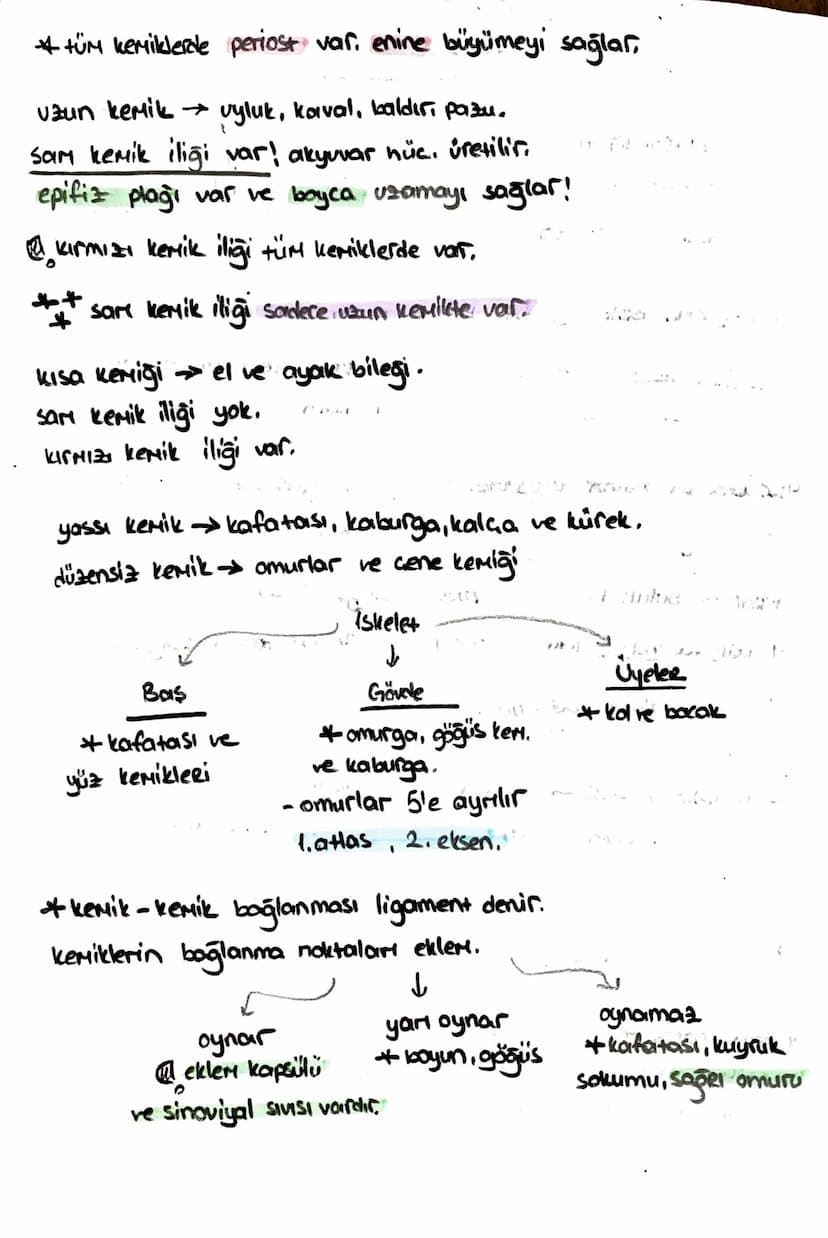 * tüm kemiklerde periost var. enine büyümeyi sağlar.
uzun kemik → uyluk, kaval, baldır, pazu.
sarı kemik iliği var! akyuvar hüc. üretilir.
epifiz plağı var ve boyca uzamayı sağlar!
kırmızı kemik iliği tüm kemiklerde var.
*** sarı kemik iliği sadece uzun kemikte var.
kısa kemiği → el ve ayak bileği.
sarı kemik iliği yok.
kırmızı kemik iliği var.
yassı kemik → kafatası, kaburga, kalça ve kürek.
düzensiz kemik → omurlar ve çene kemiği
İskelet
Baş
* kafatası ve
yüz kemikleri
Gövde
* omurga, göğüs kem.
ve kaburga.
- omurlar 5'e ayrılır
1. atlas, 2. eksen.
Üyeler
* kol ve bacak
* kemik - kemik bağlanması ligament denir.
kemiklerin bağlanma noktaları eklem.
oynar
eklem kapsülü
ve sinoviyal sıvısı vardır.
yarı oynar
* boyun, göğüs
oynamaz
* kafatası, kuyruk
sokumu, sağrı omuru